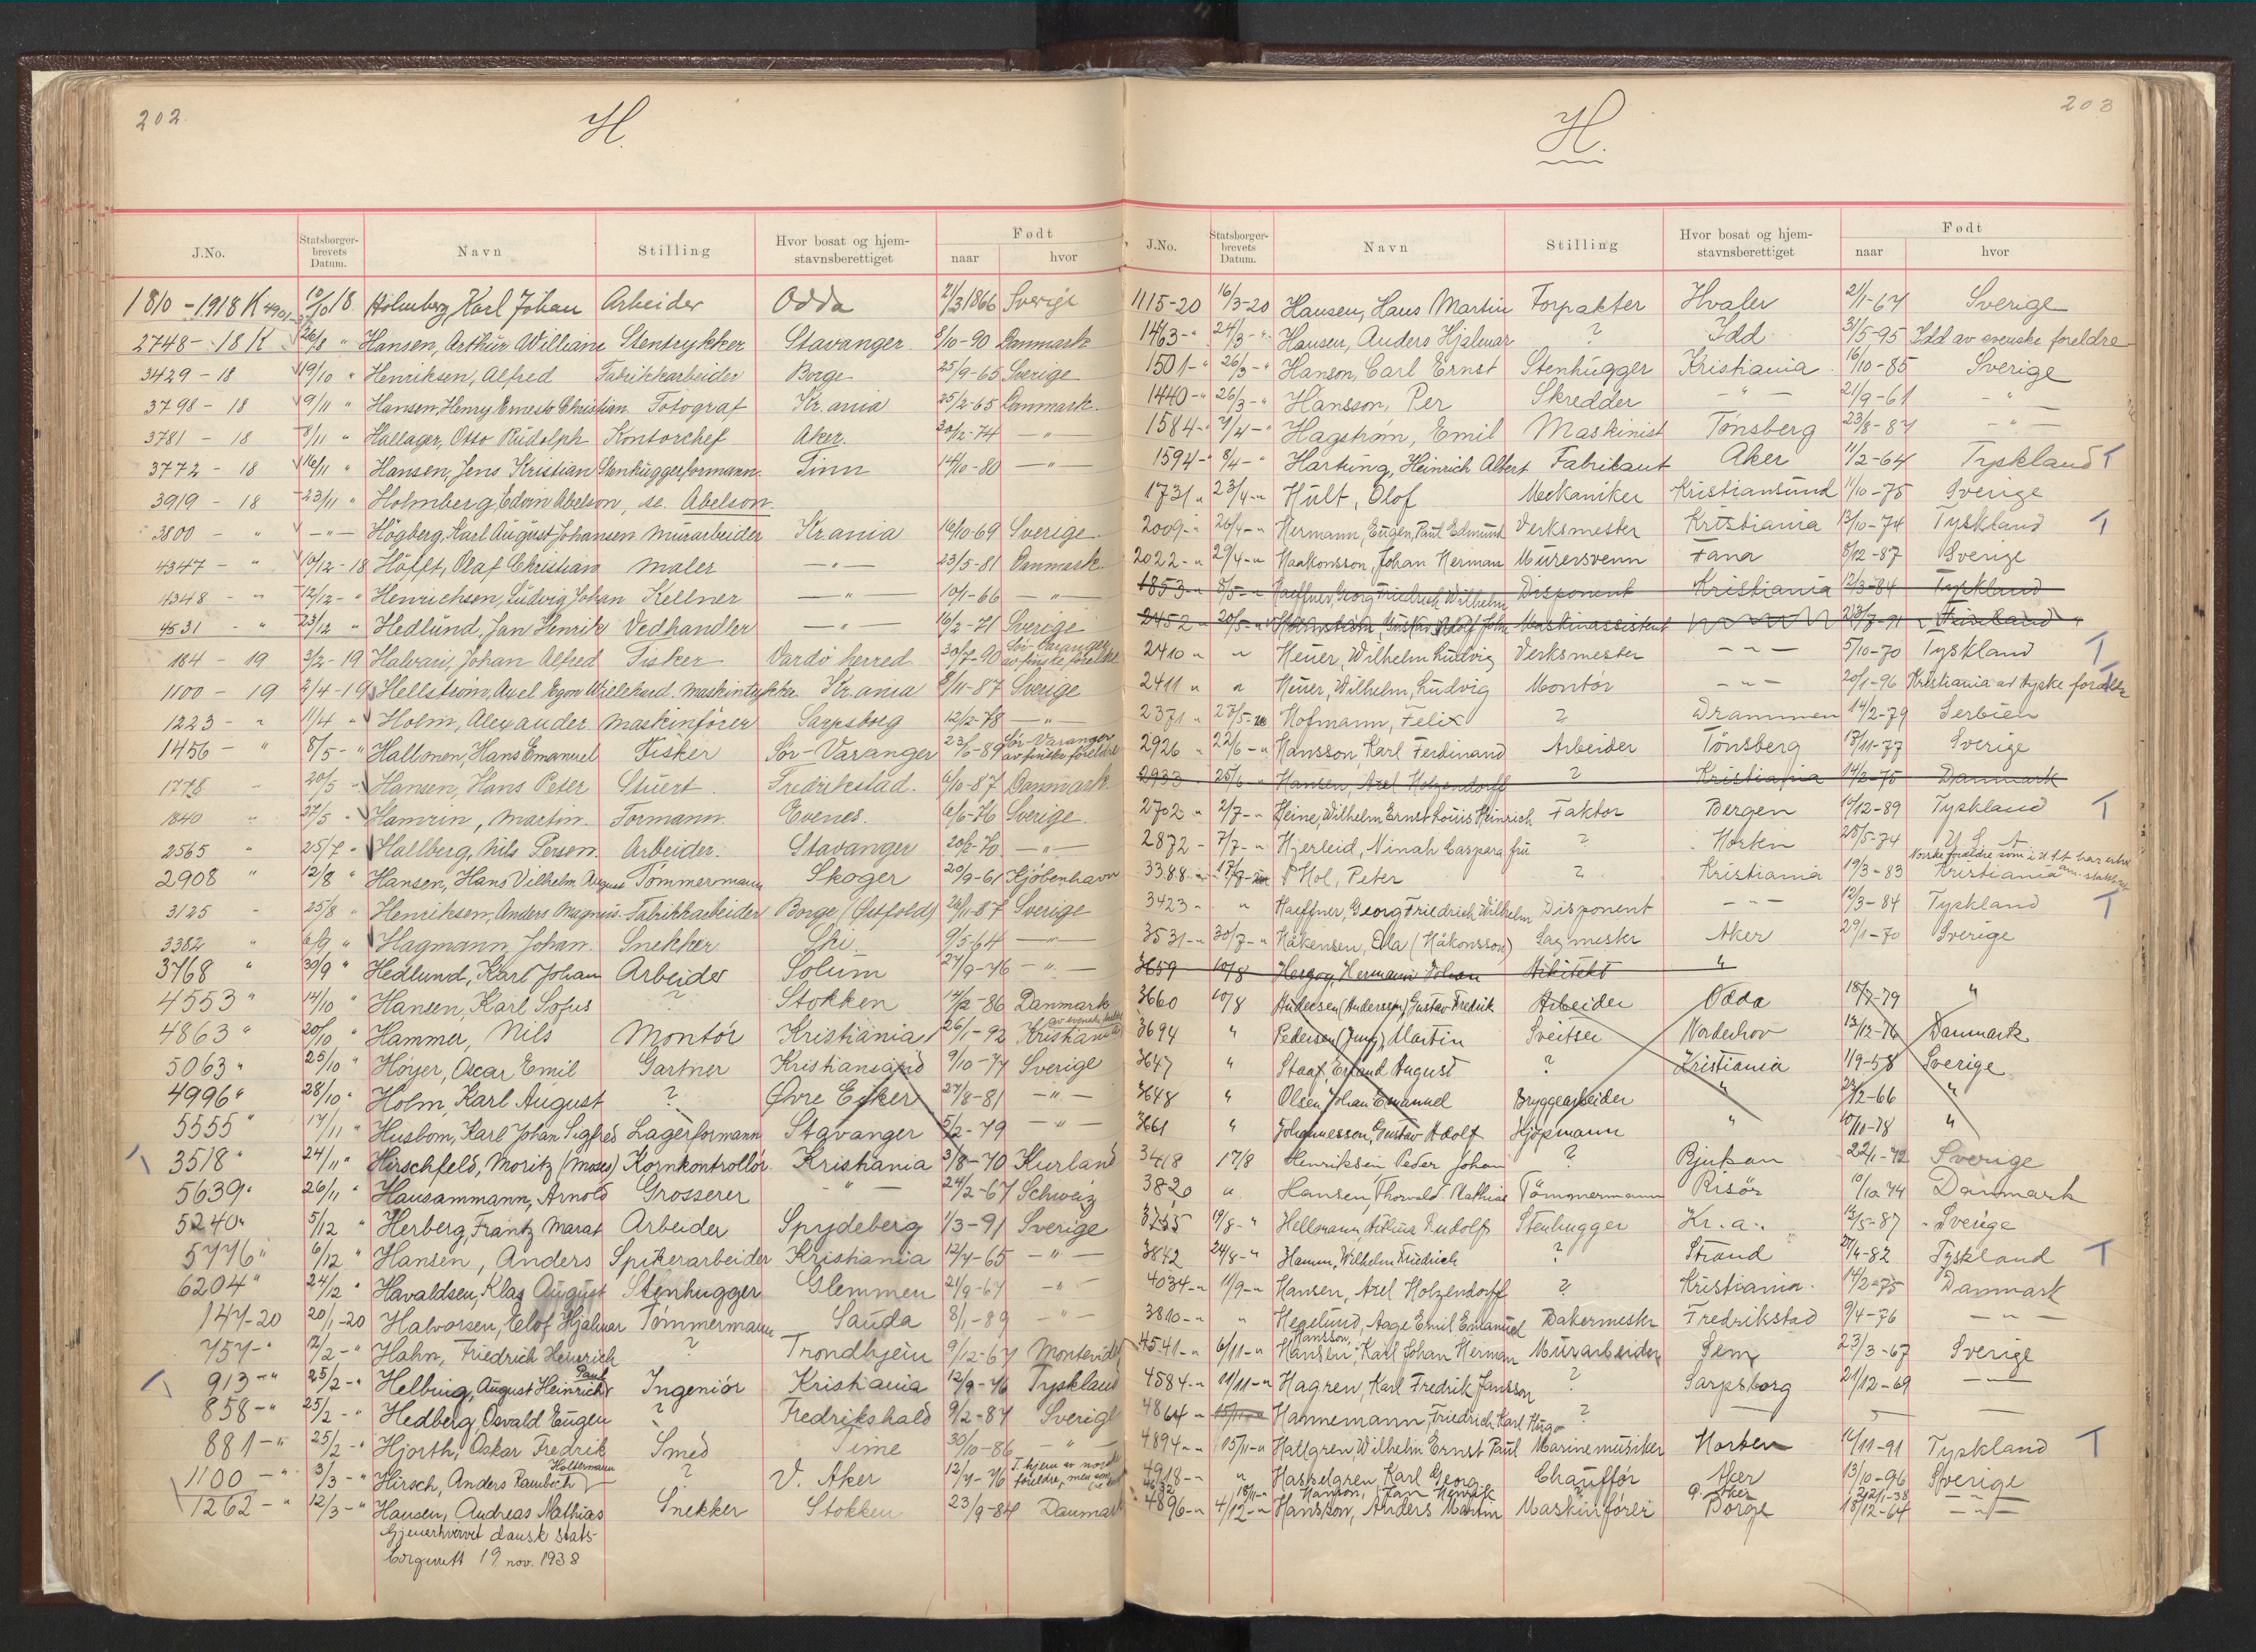 202.
H.
J.No. Statsborgerbrevets Datum. Navn Stilling Hvor bosat og hjemstavnsberettiget Født naar hvor
1810 - 1918 K 10/6 18 Holmberg, Karl Johan Arbeider Odda 21/3 1866 Sverige
2748 - 18 K 26/8 " Hansen, Arthur William Stentrykker Stavanger 8/10-90 Danmark
3429 - 18 19/10 " Henriksen, Alfred Fabrikkarbeider Borge 25/9-65 Sverige
3798 - 18 9/11 " Hansen, Henry Ernesto Christian Fotograf Kr.ania 25/2-65 Danmark.
3781 - 18 8/11 " Hallager, Otto Rudolph Kontorchef Aker. 20/2-74 - " -
3772 - 18 16/11 " Hansen, Jens Kristian Stenhuggerformann. Tinn 14/10-80 - " -
3919 - 18 23/11 " Holmberg, Edvin Abelson, se. Abelson.
3800 - " - " - Högberg, Karl August Johansen Murarbeider Kr.ania 16/10-69 Sverige
4347 - " 10/12-18 Höfft, Olaf Christian Maler - " - 23/5-81 Danmark.
4348 - " 12/12- " Henrichsen, Ludvig Johan Kellner - " - 10/1-66 - " -
4531 - " 23/12 " Hedlund, Jan Henrik Vedhandler - " - 16/2-71 Sverige
184 - 19 3/2-19 Halvari, Johan Alfred Fisker Vardö herred 30/7-90 Sör-Varanger av finske foreldre
1100 - 19 2/4-19 Hellström, Axel Egon Maskintrykker Kr.ania 8/11-87 Sverige
1223 - " 11/4 " Holm, Alexander Maskinfører Sarpsborg 12/2-78 - " -
1456 - " 8/5- " Hallonen, Hans Emanuel Fisker Sör-Varanger 23/6-89 Sör-Varanger av finske foreldre
1778 - 20/5 " Hansen, Hans Peter Stuert. Fredrikstad. 6/10-87 Danmark.
1840 " 27/5 " Hamrin, Martin. Formann Evenes. 6/6-76 Sverige.
2565 " 25/7 " Hallberg, Nils Person. Arbeider. Stavanger 20/2-70. - " -
2908 " 12/8 " Hansen, Hans Vilhelm August Tömmermann Skoger 20/9-61 Kjöbenhavn
3125 - 25/8 " Henriksen, Anders Magnus. Fabrikkarbeider Borge (Østfold) 26/11-87 Sverige
3382 " 6/9 " Hagmann, Johan. Snekker Ski. 9/5-64 - " -
3768 " 30/9 " Hedlund, Karl Johan Arbeider Solum 27/9-76 - " -
4553 " 14/10 " Hansen, Karl Sofus ? Stokken 14/2-86 Danmark
4863 " 20/10 " Hammer, Nils Montör Kristiania 26/1-92 Kristiania
5063 " 25/10 " Höyer, Oscar Emil Gartner Kristiansand 9/10-74 Sverige
4996 " 28/10 " Holm, Karl August ? Øvre Eiker 27/8-81 - " -
5555 " 17/11 " Husbom, Karl Johan Sigfred Lagerformann Stavanger 5/2-79 - " -
3518 " 24/11 " Hirschfeld, Moritz (Moses) Kornkontrollör Kristiania 3/8-70 Kurland
5639 " 26/11 " Hausammann, Arnold Grosserer - " - 24/2-67 Schweiz
5240 " 5/12 " Herberg, Frantz Marat Arbeider Spydeberg 1/3-91 Sverige
5776 " 6/12 " Hansen, Anders Spikerarbeider Kristiania 12/7-65 - " -
6204 " 24/12 " Havaldsen, Klas August Stenhugger Glemmen 21/9-67 - " -
147-20 20/1-20 Halvorsen, Elof Hjalmar Tömmermann Sauda 8/1-89 - " -
757- " 12/2- " Hahn, Friedrich Heinrich ? Trondhjem 9/12-67 Montevideo
913- " 25/2- " Helbing, August Heinrich Paul Ingeniör Kristiania 12/9-76 Tyskland
858- " 25/2- " Hedberg, Osvald Eugen ? Fredrikshald 9/2-87 Sverige
881- " 25/2- " Hjorth, Oskar Fredrik Smed Time 30/10-86 - " -
1100- " 3/3- " Hirsch, Anders Rambech Holtermann ? V. Aker 12/7-76 T.hjem av norske foreldre, men som
1262- " 12/3- " Hansen, Andreas Mathias Snekker Stokken 23/9-84 Danmark
Gjenerhvervet dansk statsborgerrett 19 nov. 1938
203
H.
J.No. Statsborgerbrevets Datum. Navn Stilling Hvor bosat og hjemstavnsberettiget Født naar hvor
1115-20 16/3-20 Hansen, Hans Martin Forpakter Hvaler 2/1-64 Sverige
1463- " 24/3- " Hansen, Anders Hjalmar ? Idd 31/5-95 Idd av svenske foreldre
1501- " 26/3- " Hanson, Carl Ernst Stenhugger Kristiania 16/10-85 Sverige
1440- " 26/3- " Hansson, Per Skredder - " - 21/9-61 - " -
1584- " 7/4- " Hagström, Emil Maskinist Tönsberg 23/8-87 - " -
1594- " 8/4- " Hartung, Heinrich Albert Fabrikant Aker 11/2-64 Tyskland T
1731 " 23/4- " Hult, Olof Mekaniker Kristiansund 11/10-75 Sverige
2009- " 26/4- " Hermann, Eugen, Paul Edmund Verksmester Kristiania 13/10-74 Tyskland T
2022- " 29/4- " Haakonsson, Johan Herman Murersvenn Fana 8/12-87 Sverige
1853- " 8/5- " Haeffner, Georg Friedrich Wilhelm Disponent Kristiania 12/3-84 Tyskland
2452 " 20/5- " Gustav Adolf John Maskinassistent 23/7-91
2410 " " Heuer, Wilhelm Ludvig Verksmester - " - 5/10-70 Tyskland T
2411 " " Heuer, Wilhelm, Ludvig Montör - " - 20/1-96 Kristiania av tyske foreldre
2371 " 27/5-20 Hofmann, Felix ? Drammen 14/2-79 Serbien
2926 " 22/6- " Hansson, Karl Ferdinand Arbeider Tönsberg 17/11-77 Sverige
2933 25/6 " Hansen, Axel Holzendorff ? Kristiania 14/2-75 Danmark
2702 " 2/7- " Heine, Wilhelm Ernst Louis Heinrich Faktor Bergen 19/12-89 Tyskland T
2872 - 7/7- " Hjerleid, Ninah Caspara fru ? Horten 25/5-74 U.S.A.
Norske foreldre som i U.S.A. har
3388 " 17/7-20 Hol, Peter ? Kristiania 19/3-83 Kristiania
3423 - " Haeffner, Georg Friedrich Wilhelm Disponent - " - 12/3-84 Tyskland T
3531- " 30/7- " Håkensen, Ola (Håkonsson) Sagmester Aker 29/1-70 Sverige
3659 10/8 Herzog, Hermann Johan Arkitekt "
3660 10/8 Andersen (Andersson) Gustav Fredrik Arbeider Odda 18/7-79 "
3694 " Pedersen (Jung), Martin Sveitser Norderhov 13/12-76 Danmark
3647 " Staaf, Erland August ? Kristiania 1/9-58 Sverige
3648 " Olsen, Johan Emanuel Bryggearbeider " 22/2-66 "
3661 " Johannesson, Gustav Adolf Kjøpmann " 10/10-78 "
3418 17/8 Henriksen Peder Johan ? Rjukan 22/1-72 Sverige
3820 " Hansen, Thorvald Mathias Tömmermann Risör 10/10 74 Danmark
3755 19/8- " Hellmann, Arthur Rudolf Stenhugger Kr.a. 12/5-87 Sverige
3842 24/8- " Hamm, Wilhelm Friedrich ? Strand 27/4-82 Tyskland T
4034- " 11/9- " Hansen, Axel Holzendorff ? Kristiania. 14/2-75 Danmark
3810- " " Hegelund, Aage Emil Emanuel Bakermester Fredrikstad 9/4-76 - " -
4541- " 6/11- " Hansen, Hansson, Karl Johan Herman Murarbeider Sem 23/3-67 Sverige
4584- " 11/11- " Hagren, Karl Fredrik Jansson ? Sarpsborg 21/12-69 - " -
4864 - " 15/11- " Hannemann, Friedrich Karl Hugo ?
4894- " 15/11- " Hallgren, Wilhelm Ernst Paul Marinemusiker Horten 16/11-91 Tyskland T
4918- " " Haskelgren, Karl Georg Chauffør Aker 13/10-96 Sverige
18/11- " Hanson, Jan Henrik Aker
4896- " 4/12- " Hansson, Anders Martin Maskinfører Borge 18/12-64 - " -